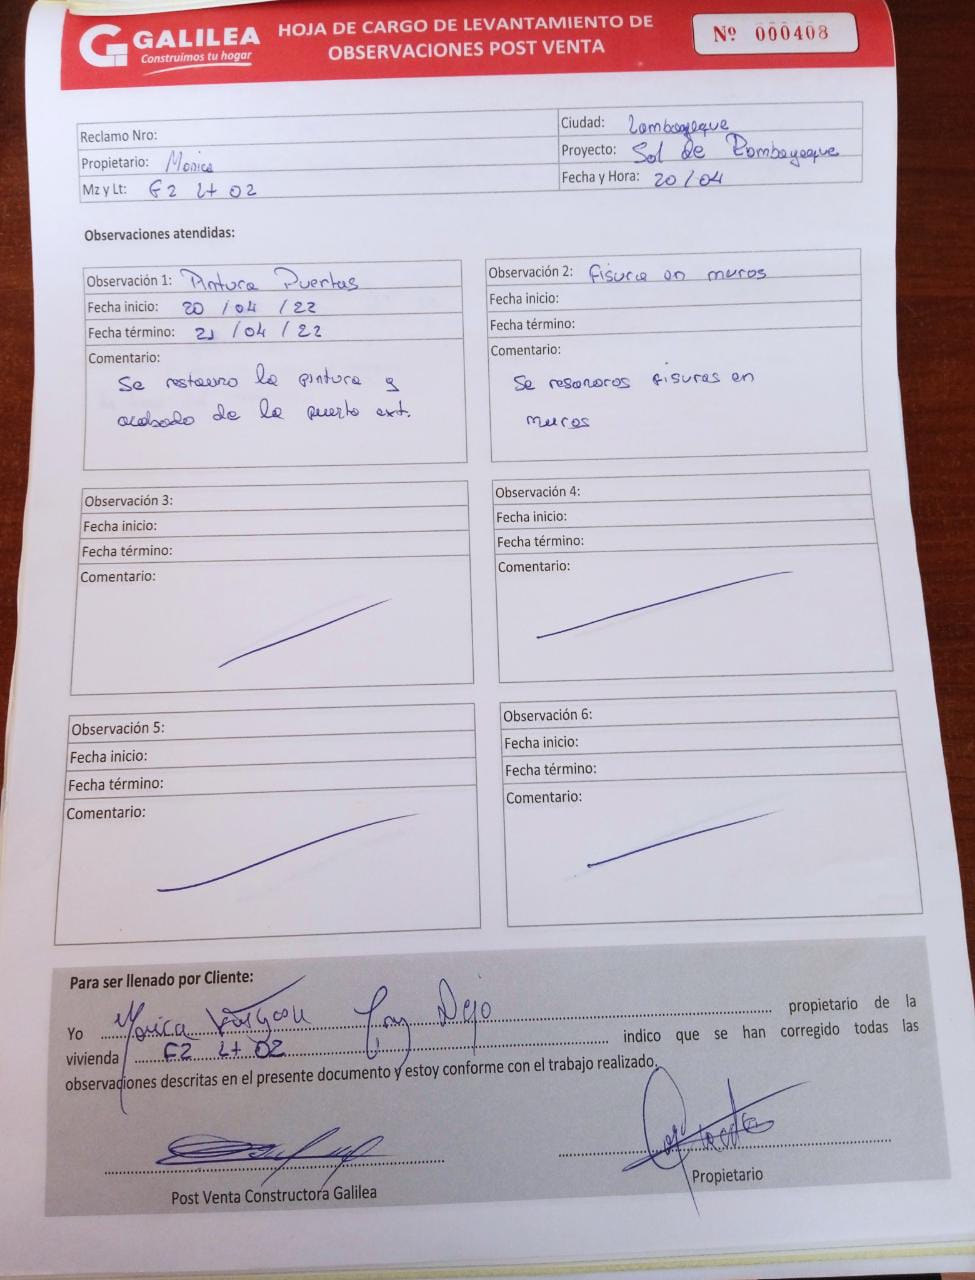 GALILEA
Construimos tu hogar
HOJA DE CARGO DE LEVANTAMIENTO DE
OBSERVACIONES POST VENTA
Nº 000408
Reclamo Nro:
Propietario: Monica
Mz y Lt: F2 Lt 02
Ciudad: Lambayeque
Proyecto: Sol de Lambayeque
Fecha y Hora: 20/04
Observaciones atendidas:
Observación 1: Pintura Puertas
Fecha inicio: 20 / 04 / 22
Fecha término: 21 / 04 / 22
Comentario:
Se restauro la pintura y
acabado de la puerta ext.
Observación 2: fisura en muros
Fecha inicio:
Fecha término:
Comentario:
Se fisuras en
muros
Observación 3:
Fecha inicio:
Fecha término:
Comentario:
Observación 4:
Fecha inicio:
Fecha término:
Comentario:
Observación 5:
Fecha inicio:
Fecha término:
Comentario:
Observación 6:
Fecha inicio:
Fecha término:
Comentario:
Para ser llenado por Cliente:
Yo Monica Dejo propietario de la
vivienda F2 Lt 02 indico que se han corregido todas las
observaciones descritas en el presente documento y estoy conforme con el trabajo realizado.
Post Venta Constructora Galilea
Propietario